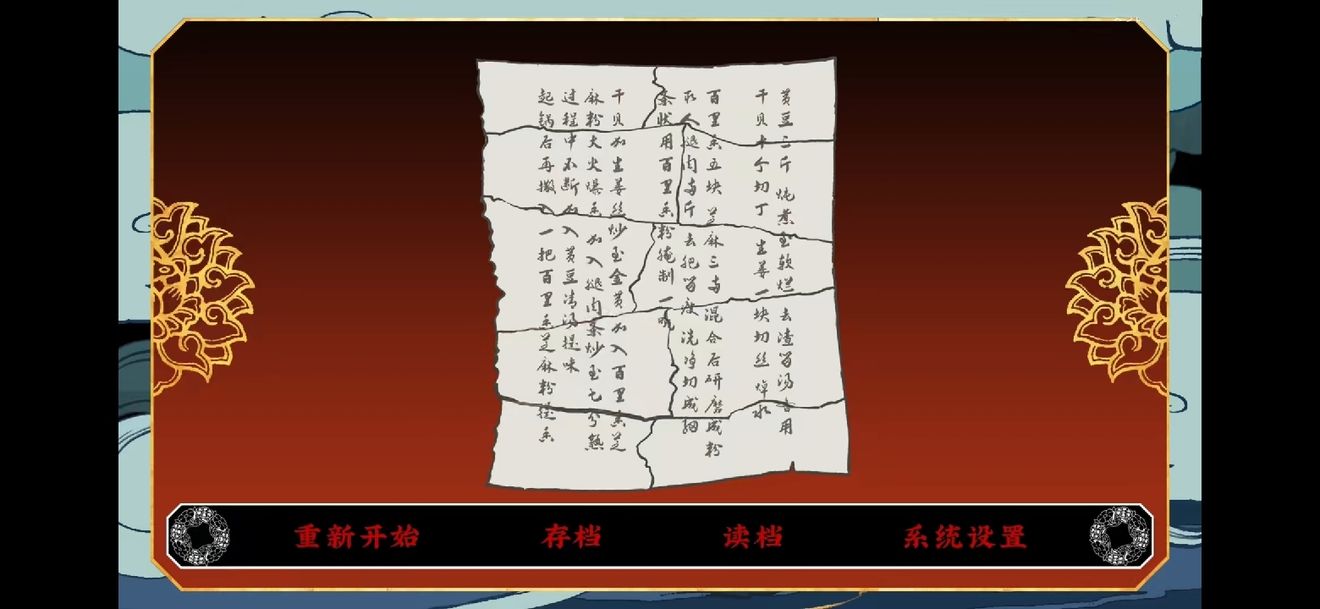 黄豆三斤 炖煮至软烂 去渣留汤备用
干贝十个切丁 生姜一块切丝 焯水
百里香五块 芝麻三两 混合后研磨成粉
取人腿肉两斤 去肥留瘦 洗净切成细
条状用百里香粉腌制一晚
干贝加生姜丝炒至金黄加入百里香芝
麻粉大火爆香 加入腿肉条炒至七分熟
过程中不断加入黄豆清汤提味
起锅后再撒入一把百里香芝麻粉提香
重新开始
存档
读档
系统设置